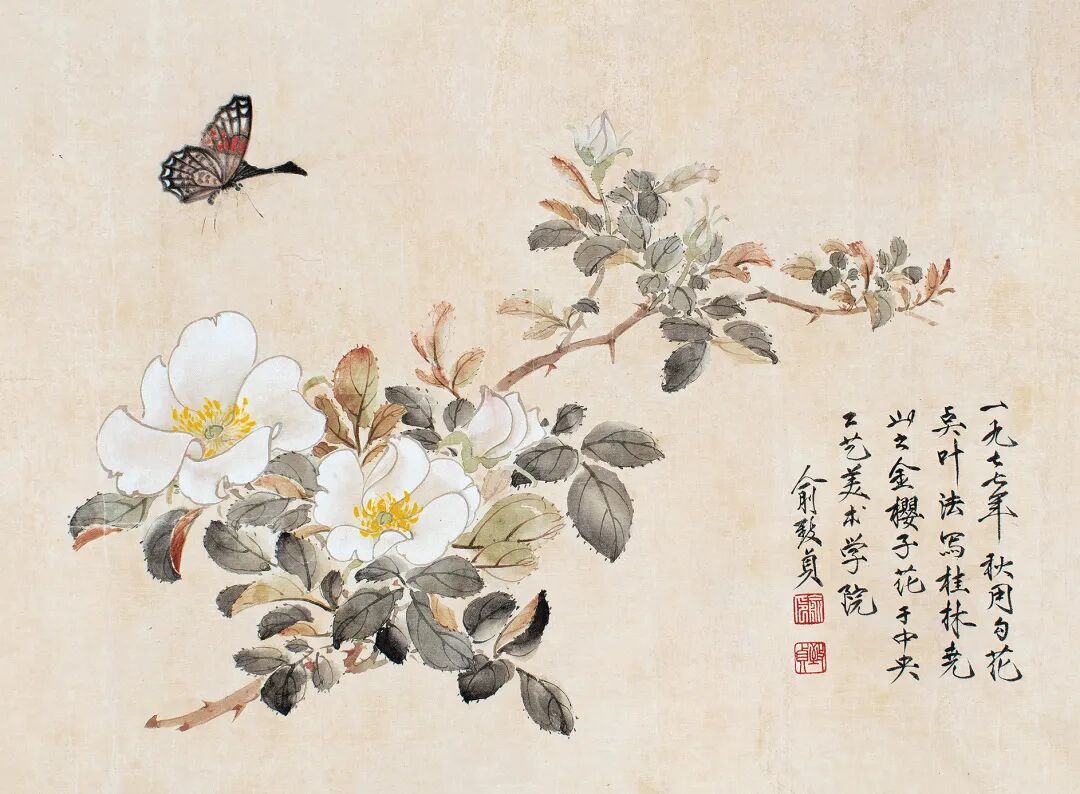 一九七七年秋用勾花
奌叶法写桂林尧
山之金櫻子花于中央
工艺美术学院
俞致貞